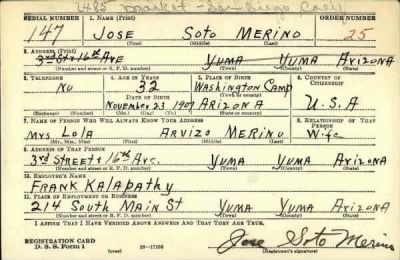 2485 Market - San Diego Calif
SERIAL NUMBER 1. NAME (Print) ORDER NUMBER
147 JOSE SOTO MERINO 25
(First) (Middle) (Last)
2. ADDRESS (Print)
3rd St & 16th Ave YUMA YUMA ARIZONA
(Number and street or R. F. D. number) (Town) (County) (State)
3. TELEPHONE 4. AGE IN YEARS 5. PLACE OF BIRTH 6. COUNTRY OF CITIZENSHIP
No 32 WASHINGTON CAMP
DATE OF BIRTH (Town or county)
NOVEMBER 23 1907 ARIZONA U.S.A
(Exchange) (Number) (Mo.) (Day) (Yr.) (State or country)
7. NAME OF PERSON WHO WILL ALWAYS KNOW YOUR ADDRESS 8. RELATIONSHIP OF THAT PERSON
Mrs LOLA ARVIZO MERINO Wife
(Mr., Mrs., Miss) (First) (Middle) (Last)
9. ADDRESS OF THAT PERSON
3rd STREET & 16th Ave. YUMA YUMA ARIZONA
(Number and street or R. F. D. number) (Town) (County) (State)
10. EMPLOYER'S NAME
FRANK KALAPATHY
11. PLACE OF EMPLOYMENT OR BUSINESS
214 SOUTH MAIN ST YUMA YUMA ARIZONA
(Number and street or R. F. D. number) (Town) (County) (State)
I AFFIRM THAT I HAVE VERIFIED ABOVE ANSWERS AND THAT THEY ARE TRUE.
REGISTRATION CARD
D. S. S. Form 1 (over) 16-17105
Jose Soto Merino
(Registrant's signature)